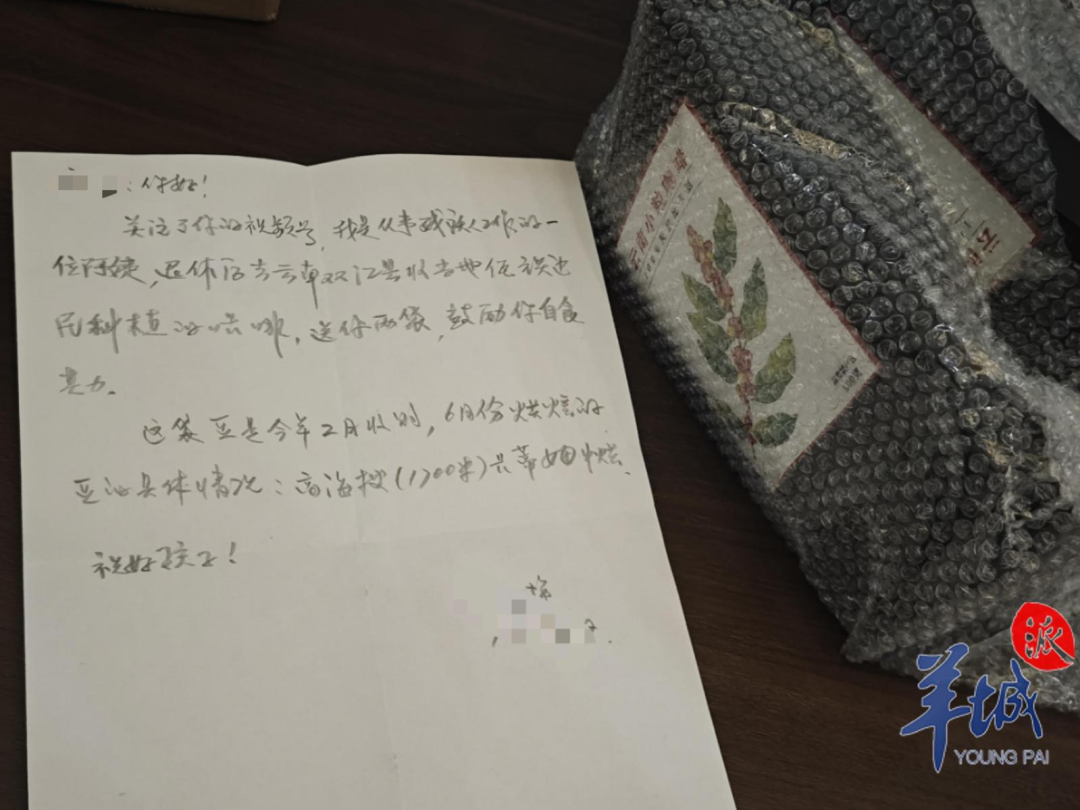 ：你好！
关注了你的视频号，我是从事残疾人工作的一
位阿姨，退休后去云南双江县收当地佤族边
民种植的咖啡，送你两袋，鼓励你自食
其力。
这袋豆是今年2月收的，6月份烘焙的
豆的具体情况：高海拔（1700米）
祝好孩子！
云南小粒咖啡
羊城派
YOUNG PAI